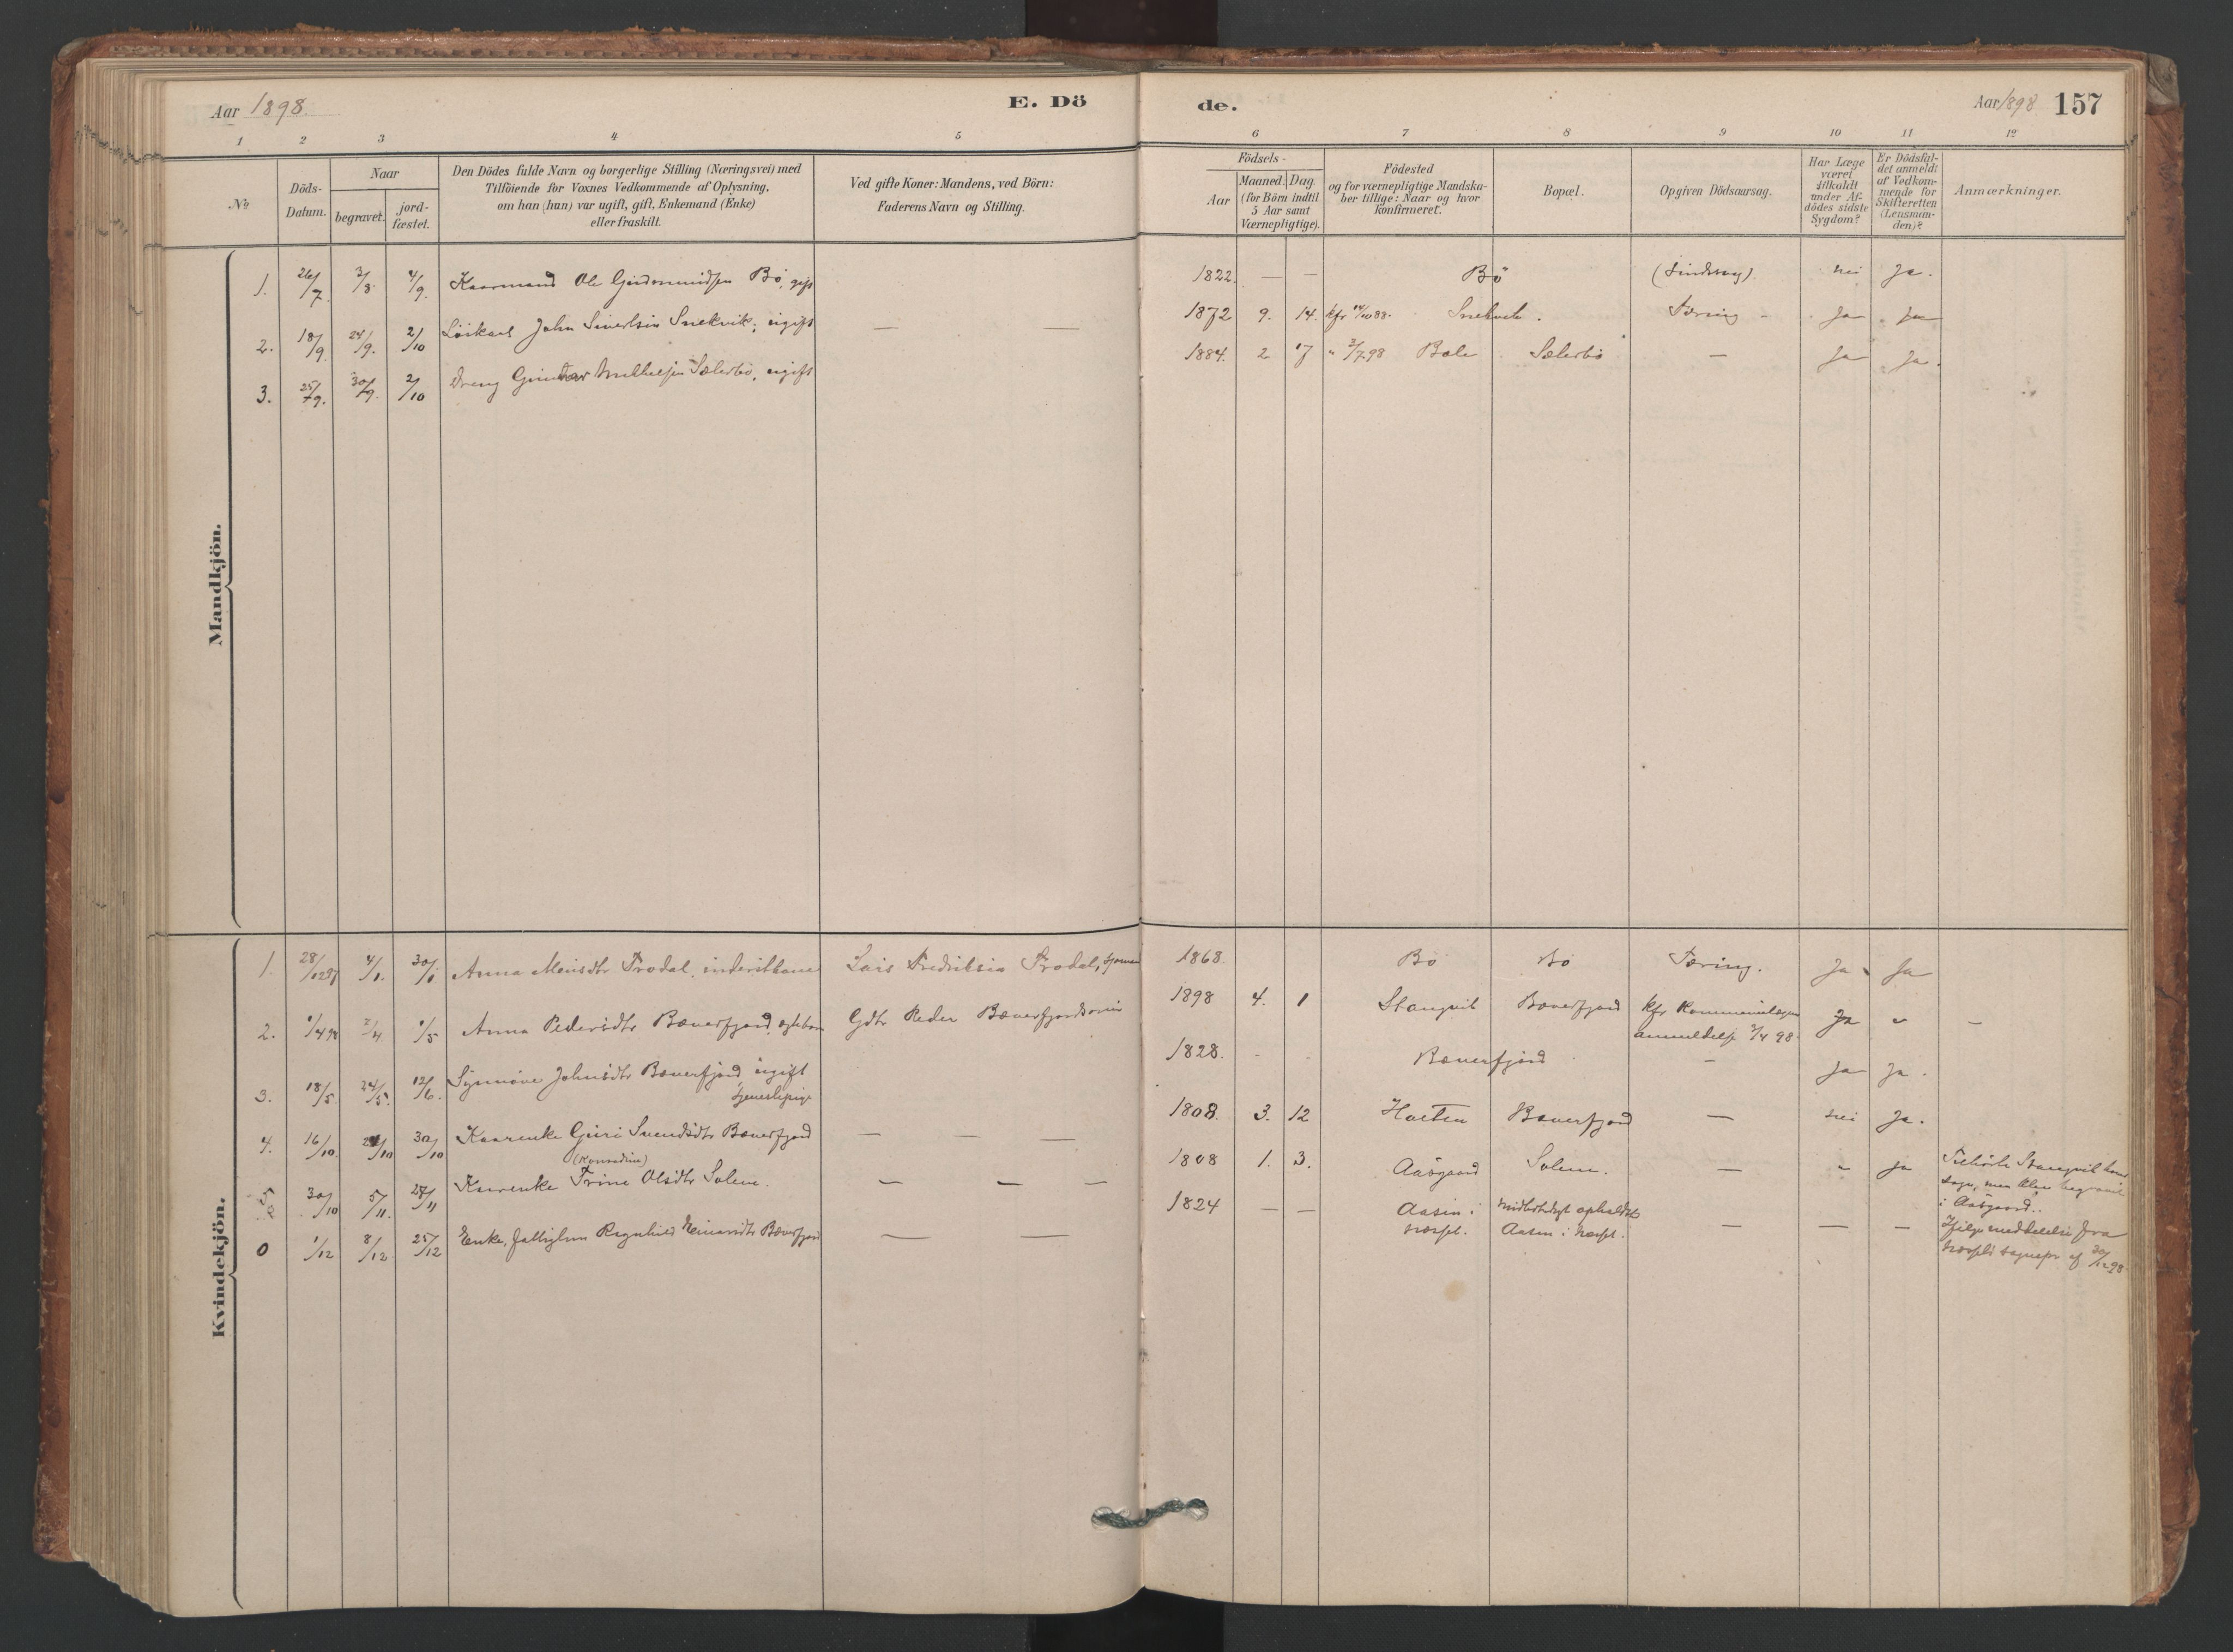 Aar 1898.
E. Dö
de.
Aar 1898 157
1 2 3 4 5 6 7 8 9 10 11 12
№
Döds-
Datum.
Naar
begravet.
jord-
fæstet.
Den Dödes fulde Navn og borgerlige Stilling (Næringsvei) med
Tilföiende for Voxnes Vedkommende af Oplysning,
om han (hun) var ugift, gift, Enkemand (Enke)
eller fraskilt.
Ved gifte Koner: Mandens, ved Börn:
Faderens Navn og Stilling.
Födsels-
Aar
Maaned. Dag.
(for Börn indtil
5 Aar samt
Værnepligtige).
Födested
og for værnepligtige Mandska-
ber tillige: Naar og hvor
konfirmeret.
Bopæl.
Opgiven Dödsaarsag.
Har Læge
været
tilkaldt
under Af-
dödes sidste
Sygdom?
Er Dödsfal-
det anmeldt
af Vedkom-
mende for
Skifteretten
(Lensman-
den)?
Anmærkninger.
Mandkjön.
1. 26/7. 3/8. 4/9. Kaarmand Ole Gudmundsen Bö, gift 1822. — — Bö (Sindssvag) nei Ja.
2. 18/9. 24/9. 2/10 John Sivertsen Snekvik, ugift — — 1872 9. 14. kfr 14/10 88. Snekvik. Tæring - Ja Ja
3. 25/9. 30/9. 2/10 Dreng Sæterbö, ugift 1884. 2 17 " 2/7 98 Bale Sæterbö — Ja Ja.
Kvindekjön.
1. 28/12 97 4/1. 30/1 Anna Trodal, Lars Fredriksen Trodal, 1868. Bö Bö Tæring. Ja Ja
2. 1/4 98 2/4 1/5 Anna Pedersdtr Bæverfjord, Gdbr Peder Bæverfjord 1898 4. 1 Stangvik Bæverfjord kfr
anmeldelse 2/4 98. Ja " —
3. 18/5. 24/5. 12/6. Synnöve Johnsdtr Bæverfjord, ugift
tjenestepige 1828. - - Bæverfjord — Ja Ja.
4. 16/10. 21/10 30/10 Kaarenke Guri Svendsdtr Bæverfjord — — — 1808. 3. 12 Bæverfjord — nei Ja.
5 30/10 5/11. 27/11 Kaarenke Trine Olsdtr Solem. — — — 1808 1. 3. Aasgaard Solem. — " ja Tilhörte Stangvik
sogn, men blev begravet
i Aasgaard.
0 1/12 8/12. 25/12 Enke, Ragnhild Einarsdtr Bæverfjord — — 1824 — — Aasen i midlertidigt opholdst
Aasen i — — — Ifölge meddelelse fra
sognepr af 30/12 98.